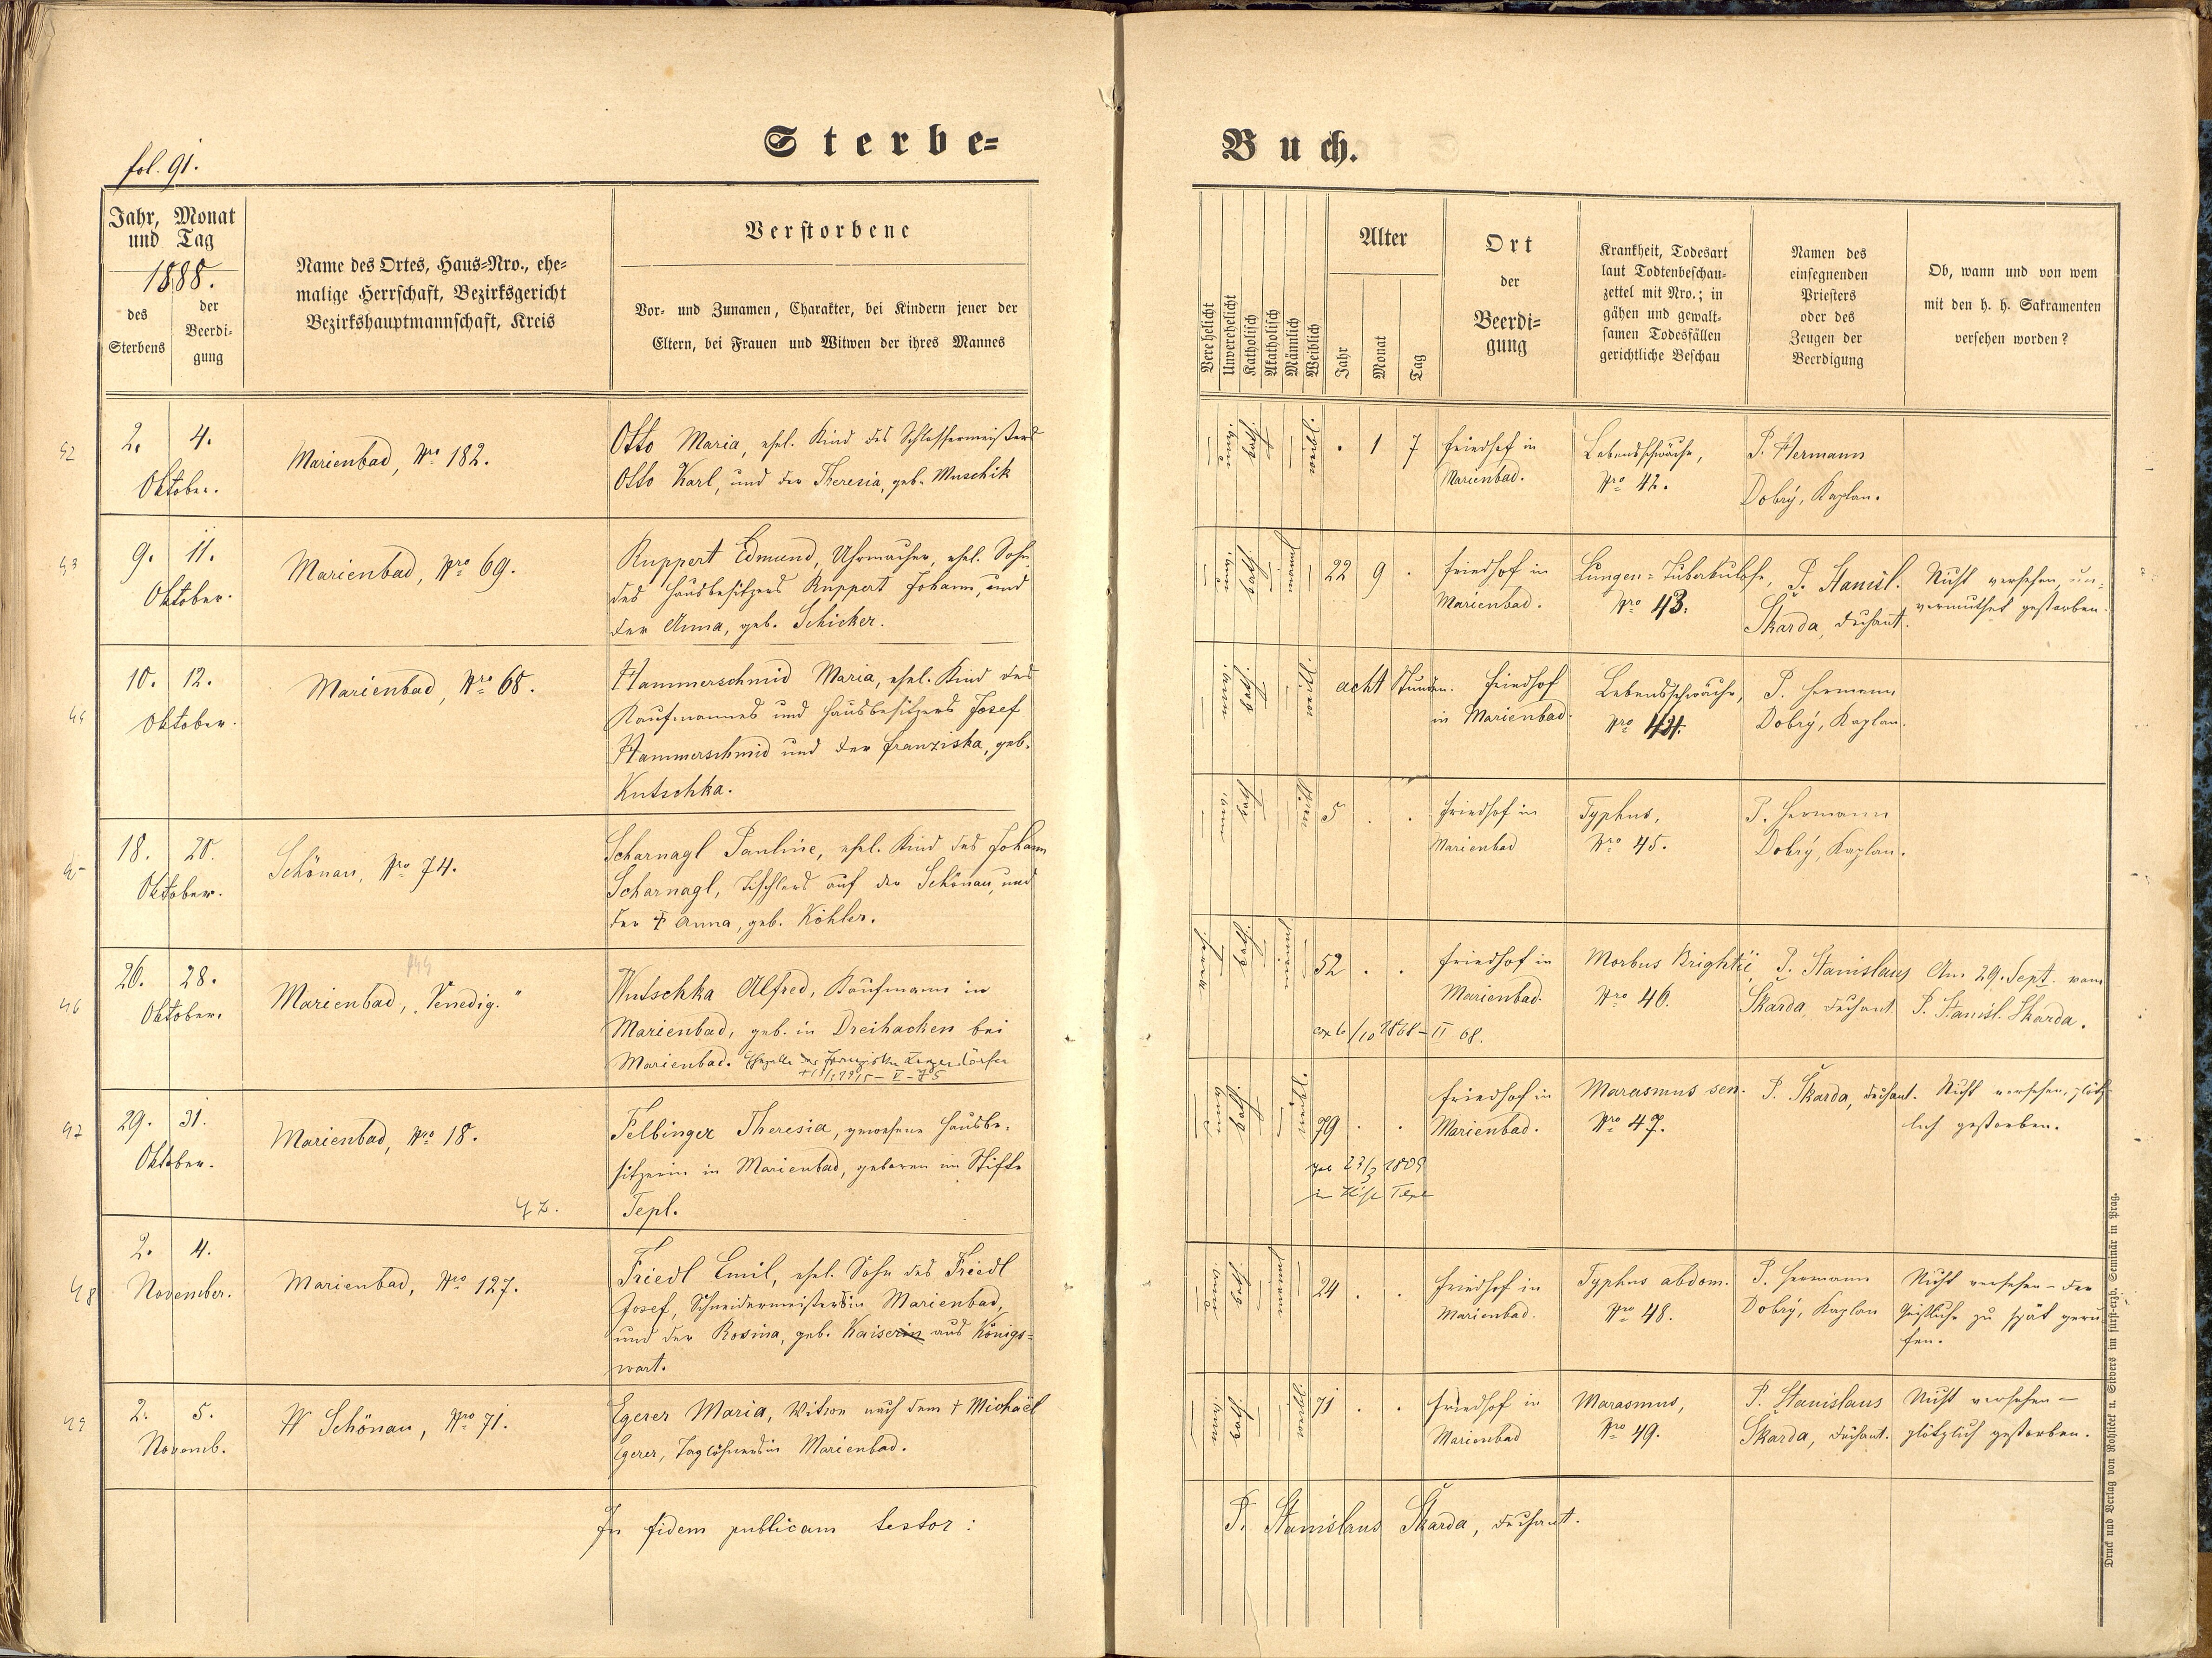 Sterbe=
Buch.
fol. 91.
Jahr, Monat
und Tag
1888.
des
Sterbens
der
Beerdi-
gung
Name des Ortes, Haus=Nro., ehe=
malige Herrschaft, Bezirksgericht
Bezirkshauptmannschaft, Kreis
Verstorbene
Vor- und Zunamen, Charakter, bei Kindern jener der
Eltern, bei Frauen und Witwen der ihres Mannes
Verehelicht
Unverehelicht
Katholisch
Akatholisch
Männlich
Weiblich
Alter
Jahr
Monat
Tag
Ort
der
Beerdi=
gung
Krankheit, Todesart
laut Todtenbeschau-
zettel mit Nro.; in
gähen und gewalt-
samen Todesfällen
gerichtliche Beschau
Namen des
einsegnenden
Priesters
oder des
Zeugen der
Beerdigung
Ob, wann und von wem
mit den h. h. Sakramenten
versehen worden?
42
2. 4.
Oktober.
Marienbad, Nro 182.
Otto Maria, ehel. Kind des Schlossermeisters
Otto Karl, und der Theresia, geb. Muschik
. 1 7
Friedhof in
Marienbad.
Lebensschwäche,
Nro 42.
P. Hermann
Dobrý, Kaplan.
43
9. 11.
Oktober.
Marienbad, Nro 69.
Ruppert Edmund, Uhrmacher, ehel. Sohn
des Hausbesitzers Ruppert Johann, und
der Anna, geb. Schicker.
22 9 .
Friedhof in
Marienbad.
Lungen=Tuberkulose,
Nro 43.
P. Stanisl.
Škarda, Dechant.
Nicht versehen, un-
vermuthet gestorben.
44
10. 12.
Oktober.
Marienbad, Nro 68.
Hammerschmid Maria, ehel. Kind des
Kaufmannes und Hausbesitzers Josef
Hammerschmid und der Franziska, geb.
Kutschka.
acht Stunden.
Friedhof
in Marienbad.
Lebensschwäche,
Nro 44.
P. Hermann
Dobrý, Kaplan.
45
18. 20.
Oktober.
Schönau, Nro 74.
Scharnagl Pauline, ehel. Kind des Johann
Scharnagl, Tischlers auf der Schönau, und
der † Anna, geb. Köhler.
5 . .
Friedhof in
Marienbad
Typhus,
Nro 45.
P. Hermann
Dobrý, Kaplan.
46
26. 28.
Oktober.
Marienbad, "Venedig."
Wutschka Alfred, Kaufmann in
Marienbad, geb. in Dreihacken bei
Marienbad.
52 . .
cop 6/10 1868 - II 68.
Friedhof in
Marienbad.
Morbus Brightii,
Nro 46.
P. Stanislaus
Škarda, Dechant
Am 29. Sept. vom
P. Stanisl. Škarda.
47
29. 31.
Oktober.
Marienbad, Nro 18.
47.
Felbinger Theresia, gewesene Hausbe-
sitzerin in Marienbad, geboren im Stifte
Tepl.
79 . .
geb 23/3 1809
in Stift Tepl
Friedhof in
Marienbad.
Marasmus sen.
Nro 47.
P. Škarda, Dechant.
Nicht versehen, plötz-
lich gestorben.
48
2. 4.
November.
Marienbad, Nro 127.
Friedl Emil, ehel. Sohn des Friedl
Josef, Schneidermeisters in Marienbad,
und der Rosina, geb. Kaiserin aus Königs-
wart.
24 . .
Friedhof in
Marienbad.
Typhus abdom.
Nro 48.
P. Hermann
Dobrý, Kaplan
Nicht versehen - der
Geistliche zu spät geru
fen.
49
2. 5.
Novemb.
Schönau, Nro 71.
Egerer Maria, Witwe nach dem † Michael
Egerer, Taglöhners in Marienbad.
71 . .
Friedhof in
Marienbad
Marasmus,
Nro 49.
P. Stanislaus
Škarda, Dechant.
Nicht versehen -
plötzlich gestorben.
In fidem publicam testor:
P. Stanislaus Škarda, Dechant.
Druck und Verlag von Rohliček u. Sievers im fürst-erzb. Seminär in Prag.